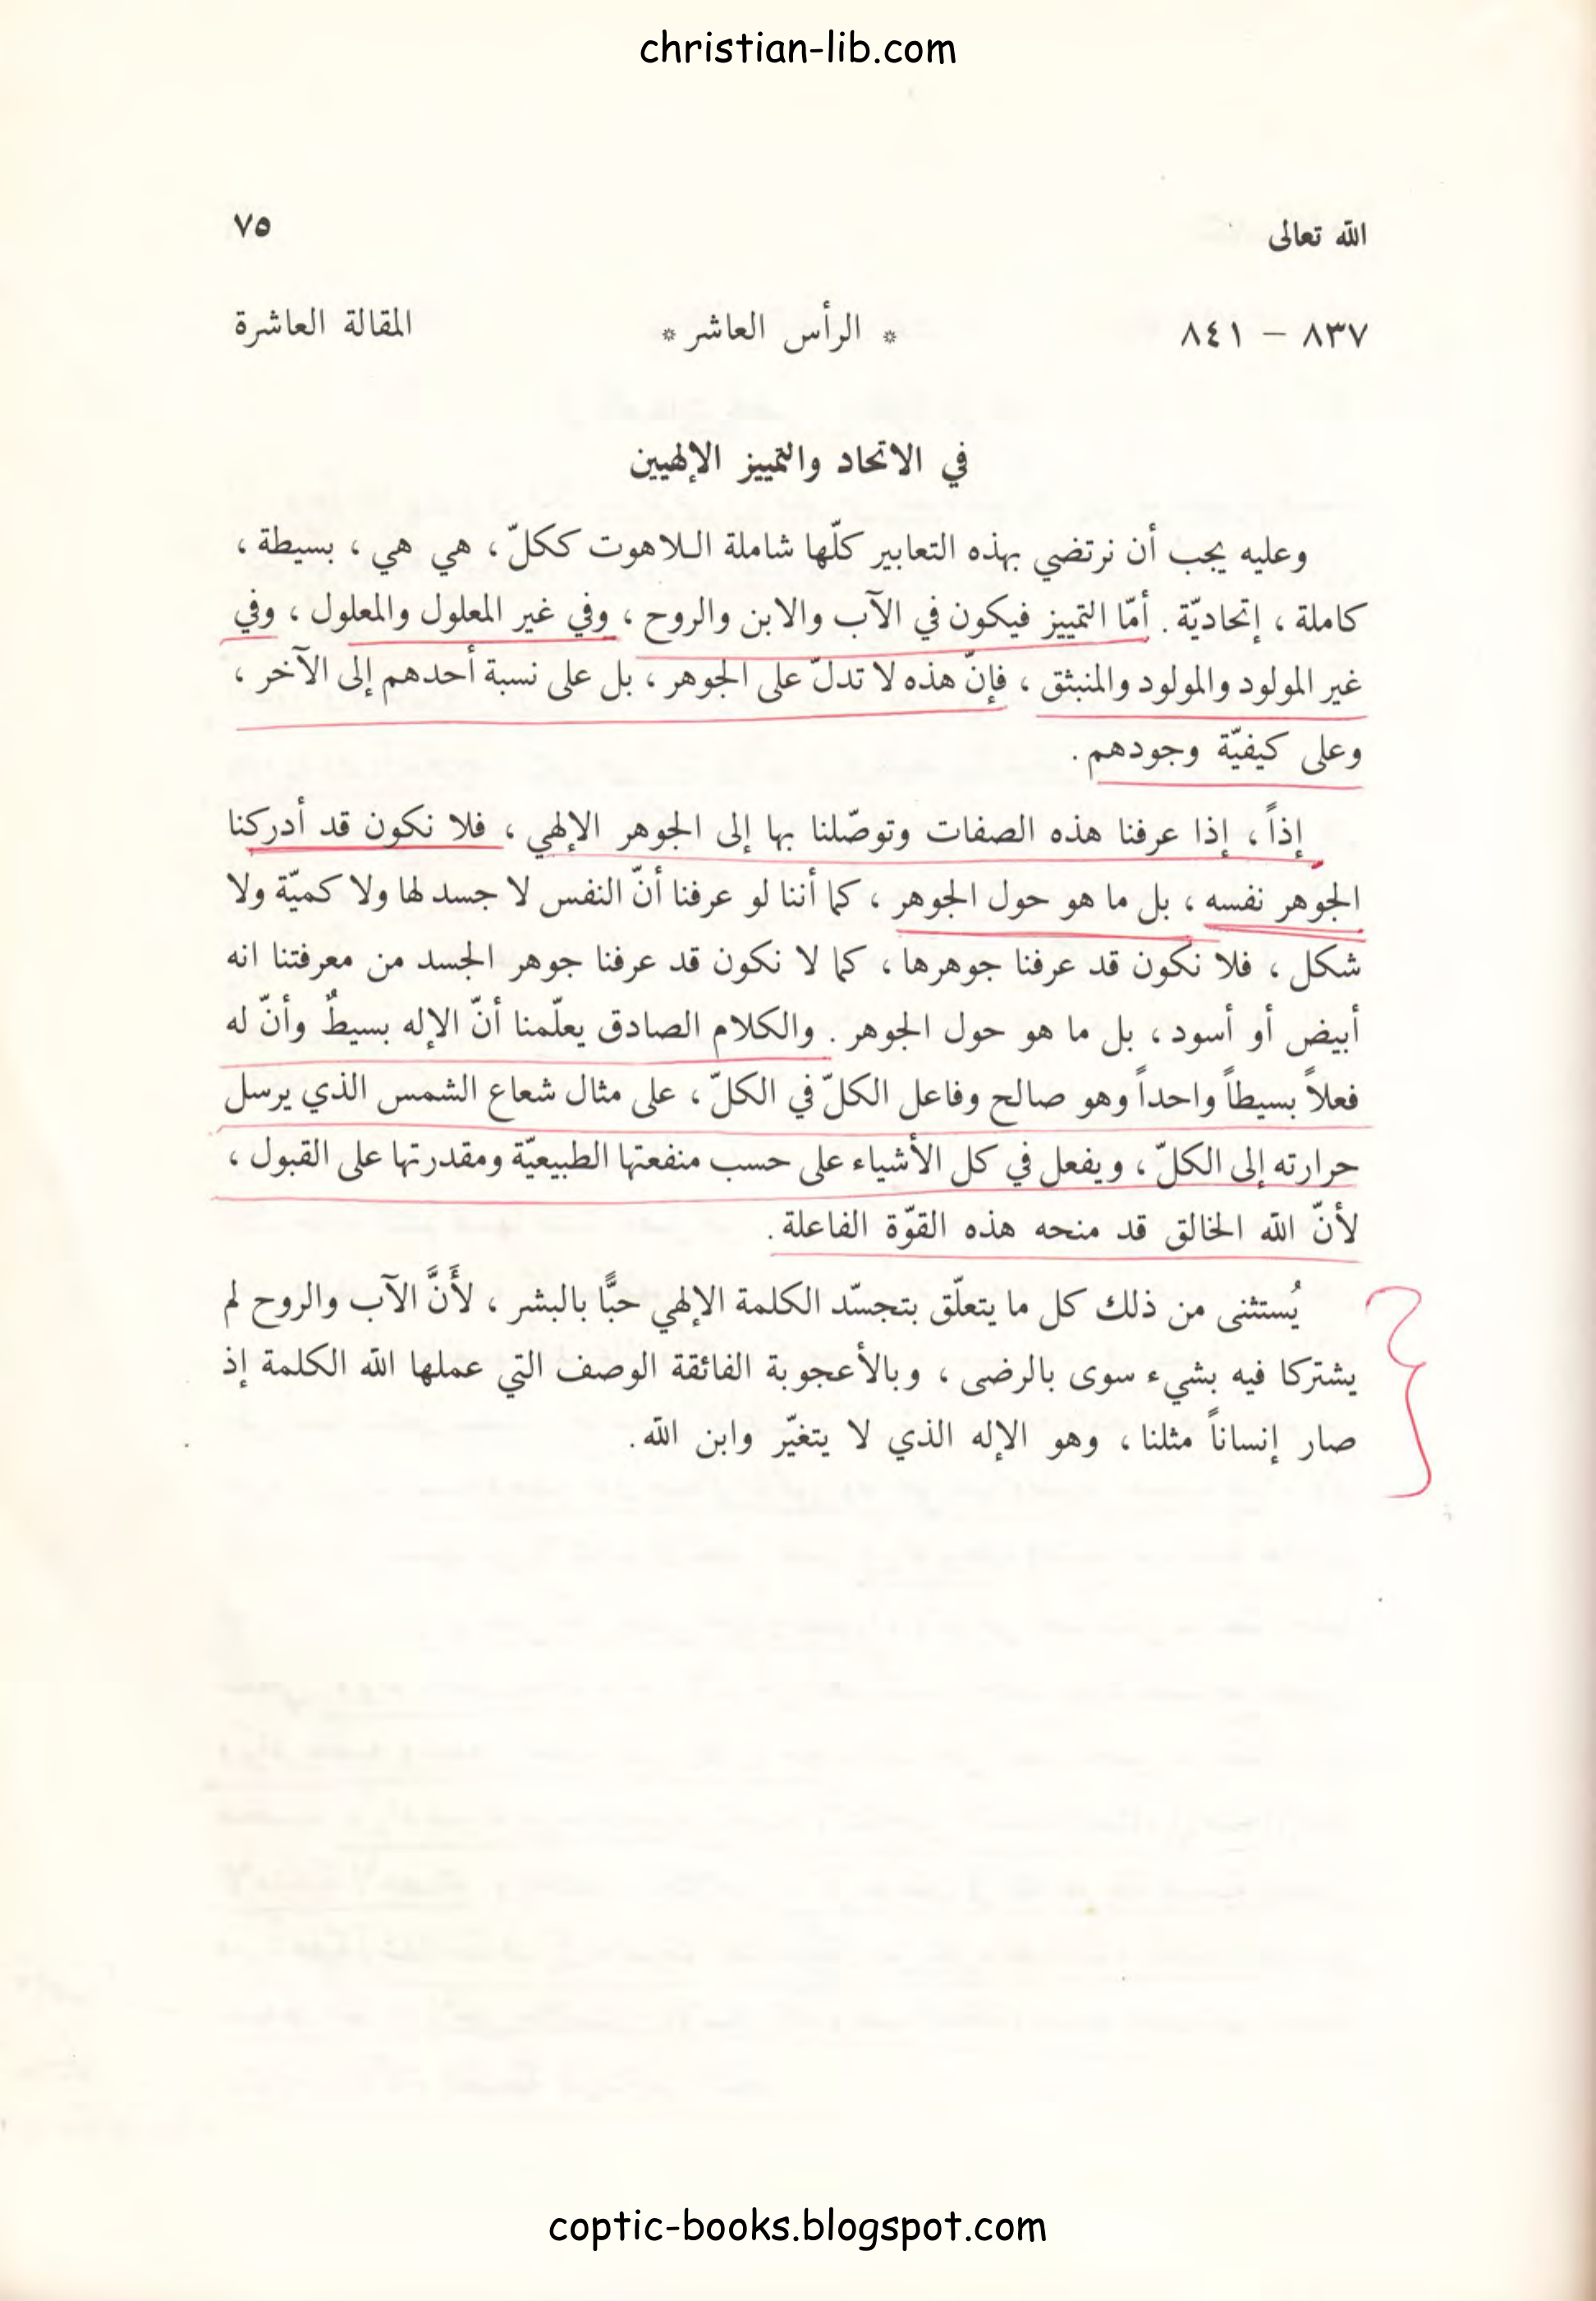 christian-lib.com
الله تعالى ٧٥
٨٣٧ – ٨٤١ * الرأس العاشر * المقالة العاشرة
في الاتحاد والتمييز الإلهيين
وعليه يجب أن نرتضي بهذه التعابير كلّها شاملة اللاهوت ككلّ، هي هي، بسيطة،
كاملة، إتحاديّة. أمّا التمييز فيكون في الآب والابن والروح، وفي غير المعلول والمعلول، وفي
غير المولود والمولود والمنبثق، فإنّ هذه لا تدلّ على الجوهر، بل على نسبة أحدهم إلى الآخر،
وعلى كيفيّة وجودهم.
إذاً، إذا عرفنا هذه الصفات وتوصّلنا بها إلى الجوهر الإلهي، فلا نكون قد أدركنا
الجوهر نفسه، بل ما هو حول الجوهر، كما أننا لو عرفنا أنّ النفس لا جسد لها ولا كميّة ولا
شكل، فلا نكون قد عرفنا جوهرها، كما لا نكون قد عرفنا جوهر الجسد من معرفتنا انه
أبيض أو أسود، بل ما هو حول الجوهر. والكلام الصادق يعلّمنا أنّ الإله بسيطٌ وأنّ له
فعلاً بسيطاً واحداً وهو صالح وفاعل الكلّ في الكلّ، على مثال شعاع الشمس الذي يرسل
حرارته إلى الكلّ، ويفعل في كل الأشياء على حسب منفعتها الطبيعيّة ومقدرتها على القبول،
لأنّ الله الخالق قد منحه هذه القوّة الفاعلة.
يُستثنى من ذلك كل ما يتعلّق بتجسّد الكلمة الإلهي حبًّا بالبشر، لأَنَّ الآب والروح لم
يشتركا فيه بشيء سوى بالرضى، وبالأعجوبة الفائقة الوصف التي عملها الله الكلمة إذ
صار إنساناً مثلنا، وهو الإله الذي لا يتغيّر وابن الله.
coptic-books.blogspot.com